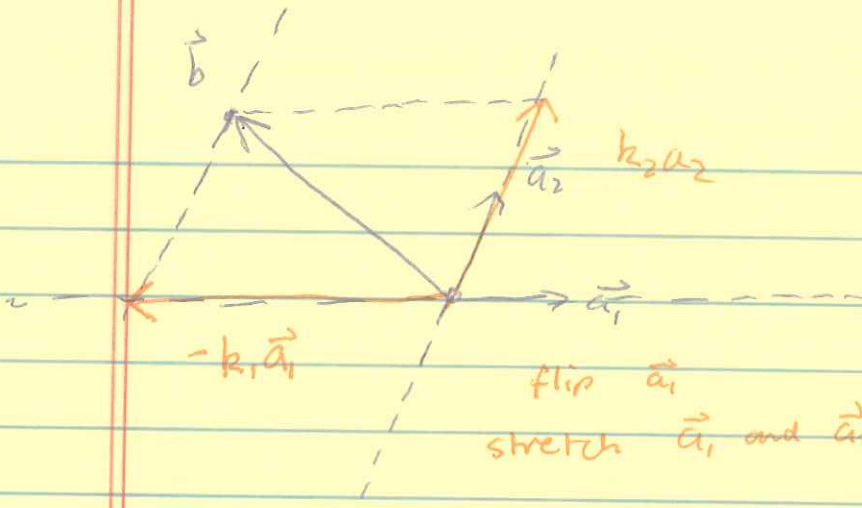 b⃗
a⃗₂
k₂a₂
a⃗₁
-k₁a⃗₁
flip a⃗₁
stretch a⃗₁ and a⃗